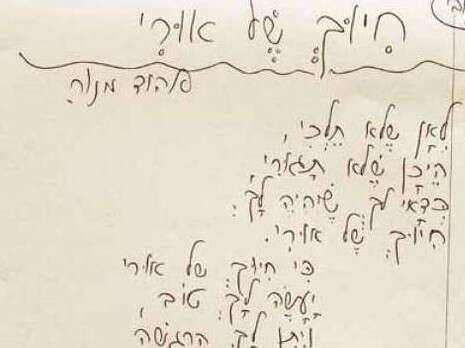 חִיּוּךְ שֶׁל אוּרִי
אהוד מנור
לְאָן שֶׁלֹּא תֵּלְכִי,
הֵיכָן שֶׁלֹּא תָּגוּרִי
כְּדָאי לָךְ שֶׁיִּהְיֶה לָךְ
חִיּוּךְ שֶׁל אוּרִי.
כִּי חִיּוּךְ שֶׁל אוּרִי
יַעֲשֶׂה לָךְ טוֹב,
וְיִתֵּן לָךְ הַרְגָּשָׁה